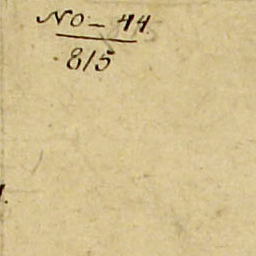 No - 44
815